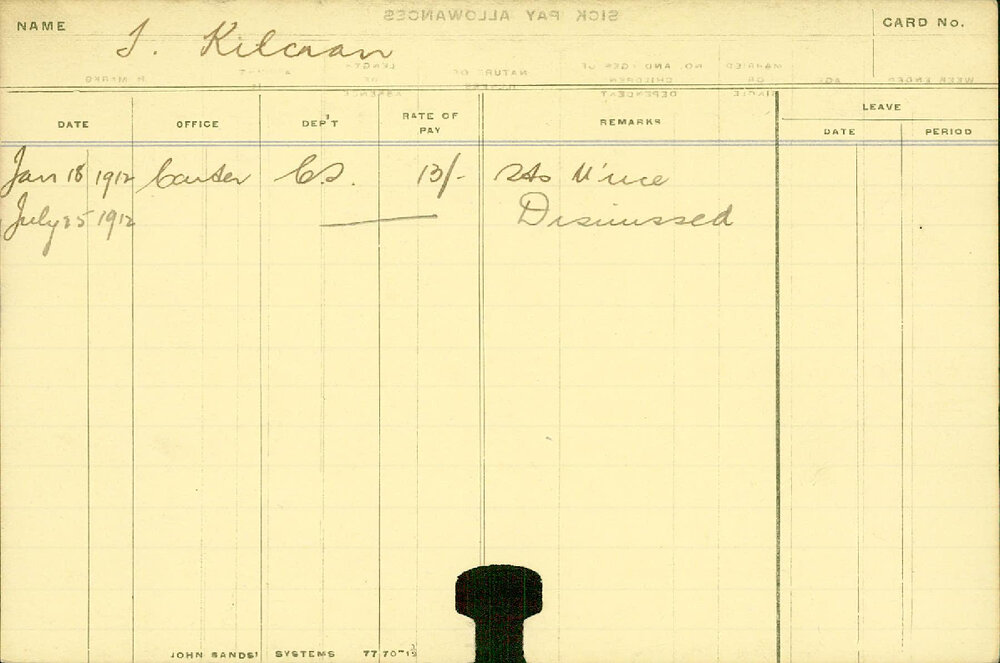 NAME T. Kilcran CARD No.
LEAVE
DATE OFFICE DEP'T RATE OF PAY REMARKS DATE PERIOD
Jan 18 1912 Carter C.S. 13/-
July 25 1912 Dismissed
JOHN SANDS' SYSTEMS 77 70-